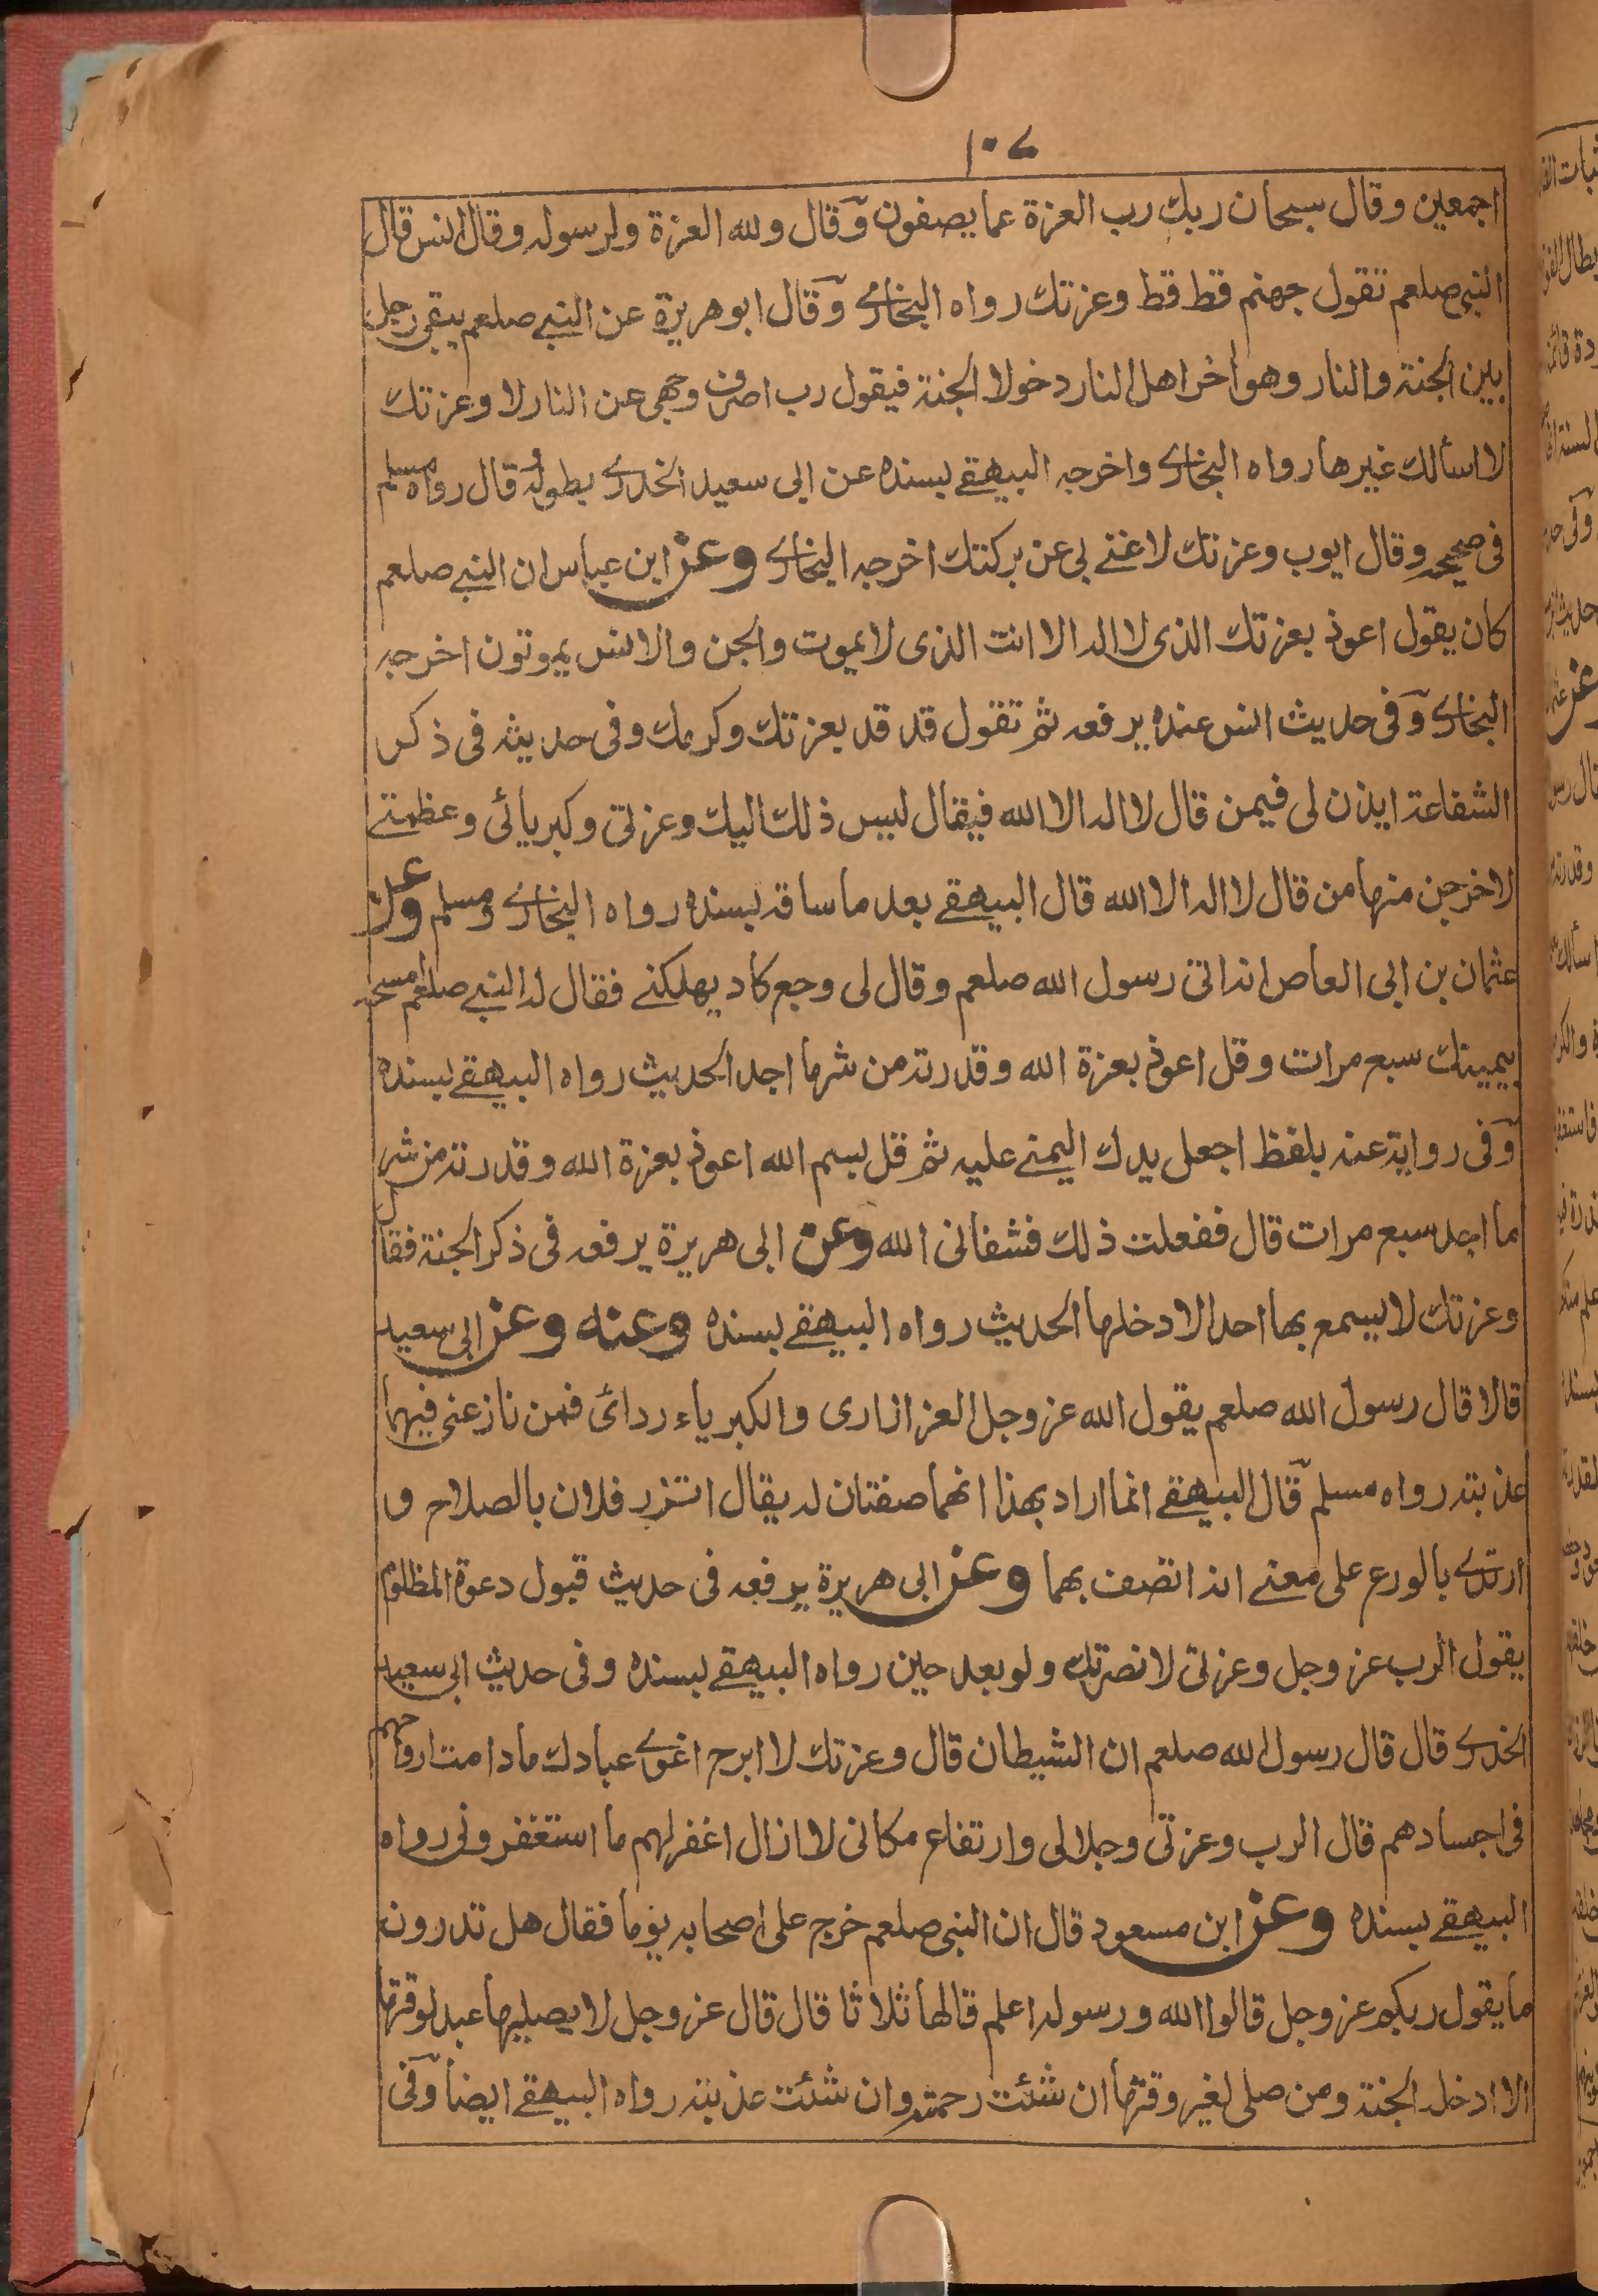 ١٠٧
اجمعين وقال سبحان ربك رب العزة عما يصفون وقال ولله العزة ولرسوله وقال انس قال
النبي صلعم تقول جهنم قط قط وعزتك رواه البخاري وقال ابو هريرة عن النبي صلعم يبقى رجل
بين الجنة والنار وهو اخر اهل النار دخولا الجنة فيقول رب اصرف وجهي عن النار لا وعزتك
لا اسألك غيرها رواه البخاري واخرجه البيهقي بسنده عن ابي سعيد الخدري بطوله وقال رواه مسلم
في صحيحه وقال ايوب وعزتك لا غنى بي عن بركتك اخرجه البخاري وعن ابن عباس ان النبي صلعم
كان يقول اعوذ بعزتك الذى لا اله الا انت الذى لا يموت والجن والانس يموتون اخرجه
البخاري وفى حديث انس عنده يرفعه ثم تقول قد قد بعزتك وكرمك وفى حديثه فى ذكر
الشفاعة ايذن لى فيمن قال لا اله الا الله فيقال ليس ذلك اليك وعزتى وكبريائى وعظمتى
لاخرجن منها من قال لا اله الا الله قال البيهقي بعد ما ساقه بسنده رواه البخاري ومسلم وعن
عثمان بن ابى العاص انه اتى رسول الله صلعم وقال لى وجع كاد يهلكنى فقال له النبي صلعم امسحه
بيمينك سبع مرات وقل اعوذ بعزة الله وقدرته من شر ما اجد الحديث رواه البيهقي بسنده
وفى رواية عنه بلفظ اجعل يدك اليمنى عليه ثم قل بسم الله اعوذ بعزة الله وقدرته من شر
ما اجد سبع مرات قال ففعلت ذلك فشفانى الله وعن ابى هريرة يرفعه فى ذكر الجنة فقال
وعزتك لا يسمع بها احد الا دخلها الحديث رواه البيهقي بسنده وعنه وعن ابى سعيد
قالا قال رسول الله صلعم يقول الله عز وجل العز ازارى والكبرياء ردائى فمن نازعنى فيهما
عذبته رواه مسلم قال البيهقي انما اراد بهذا انهما صفتان له يقال اتزر فلان بالصلاح و
ارتدي بالورع على معنى انه اتصف بهما وعن ابى هريرة يرفعه فى حديث قبول دعوة المظلوم
يقول الرب عز وجل وعزتى لانصرنك ولو بعد حين رواه البيهقي بسنده وفى حديث ابى سعيد
الخدري قال قال رسول الله صلعم ان الشيطان قال وعزتك لا ابرح اغوي عبادك ما دامت ارواحهم
فى اجسادهم قال الرب وعزتى وجلالى وارتفاع مكانى لا ازال اغفر لهم ما استغفرونى رواه
البيهقي بسنده وعن ابن مسعود قال ان النبى صلعم خرج على اصحابه يوما فقال هل تدرون
ما يقول ربكم عز وجل قالوا الله ورسوله اعلم قالها ثلاثا قال قال عز وجل لا يصليها عبد لوقتها
الا ادخله الجنة ومن صلى لغير وقتها ان شئت رحمته وان شئت عذبته رواه البيهقي ايضا وفى